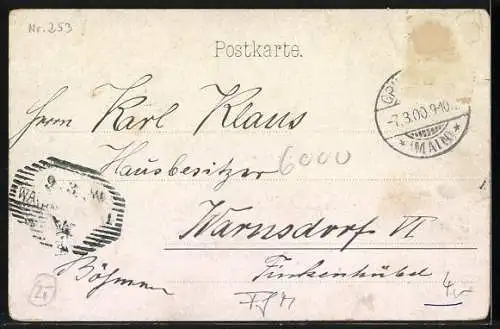 Nr. 253
Postkarte.
Herrn Karl Klaus
Hausbesitzer
6000
Warnsdorf VI
Finkenhübel
Böhmen
-7.3.00.9-10
*(MAIN)*
9.3.
WA
1
4